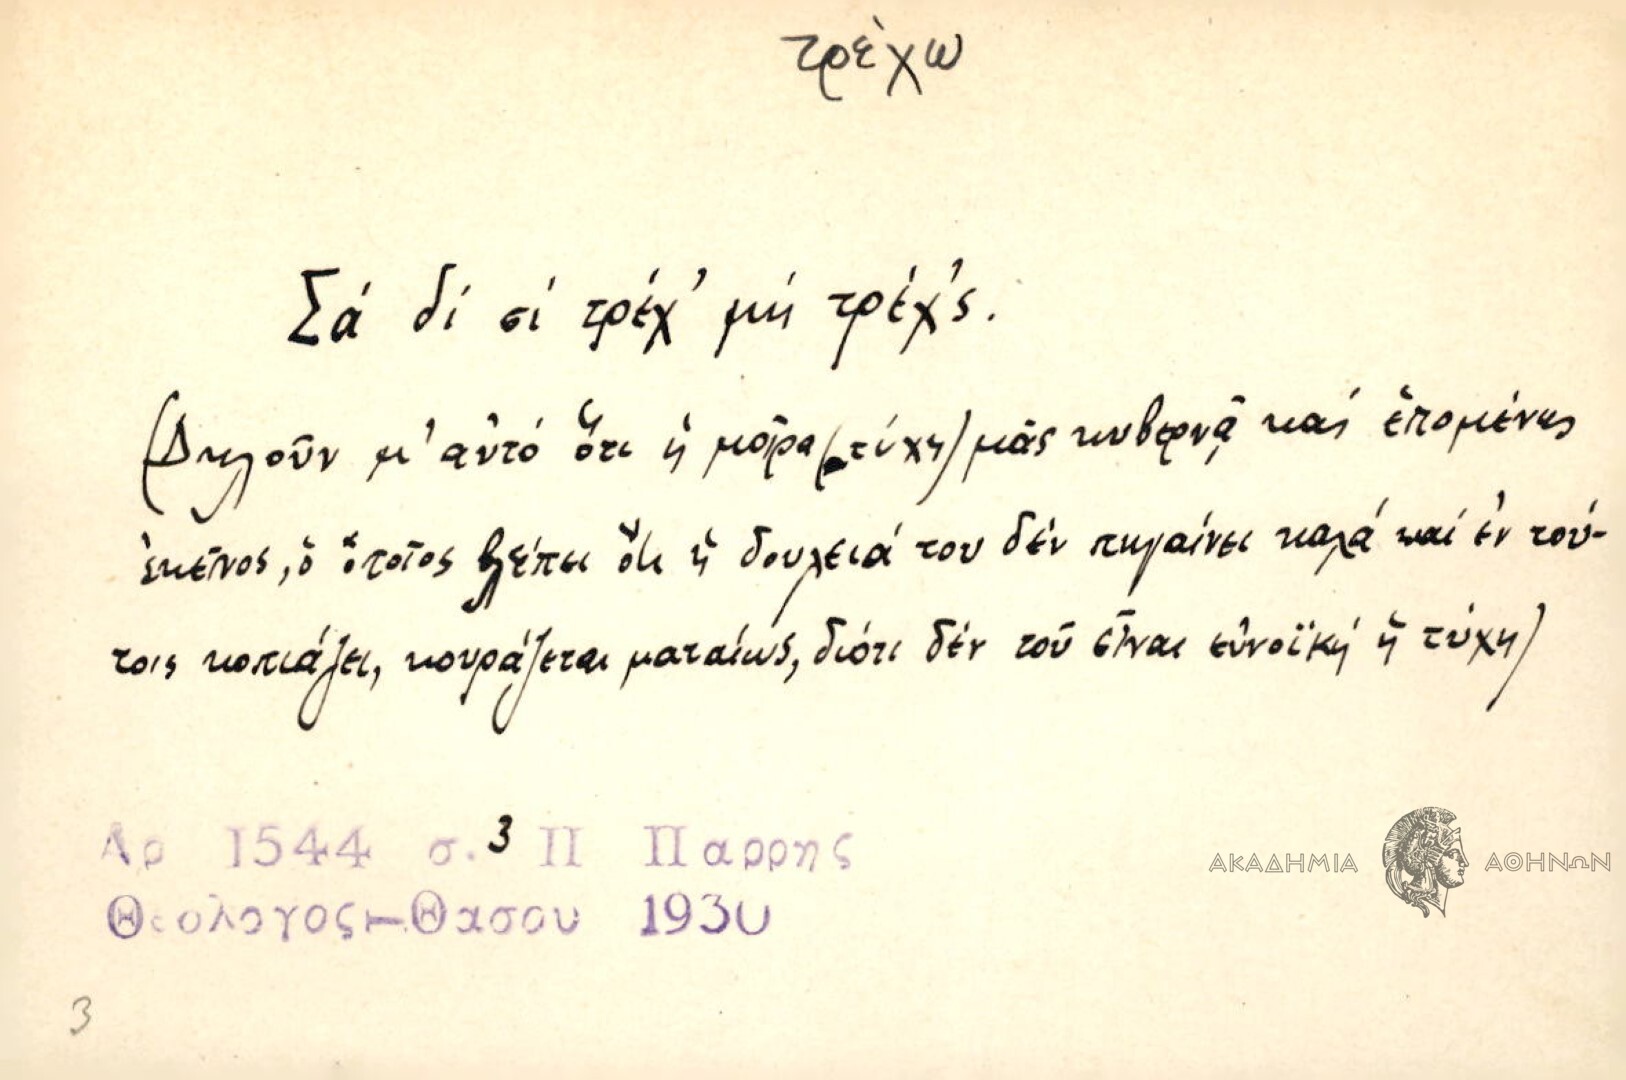 τρέχω
Σά δί σί τρέχ' μή τρέχ'ς.
(Δηλοῦν μ' αὐτό ὅτι ἡ μοῖρα (τύχη) μᾶς κυβερνᾷ καί ἑπομένως
ἐκεῖνος, ὁ ὁποῖος βλέπει ὅτι ἡ δουλειά του δέν πηγαίνει καλά καί ἐν τού-
τοις κοπιάζει, κουράζεται ματαίως, διότι δέν τοῦ εἶναι εὐνοϊκή ἡ τύχη)
Αρ 1544 σ. 3 Π Παρρης
Θεολογος-Θασου 1930
ΑΚΑΔΗΜΙΑ ΑΘΗΝΩΝ
3